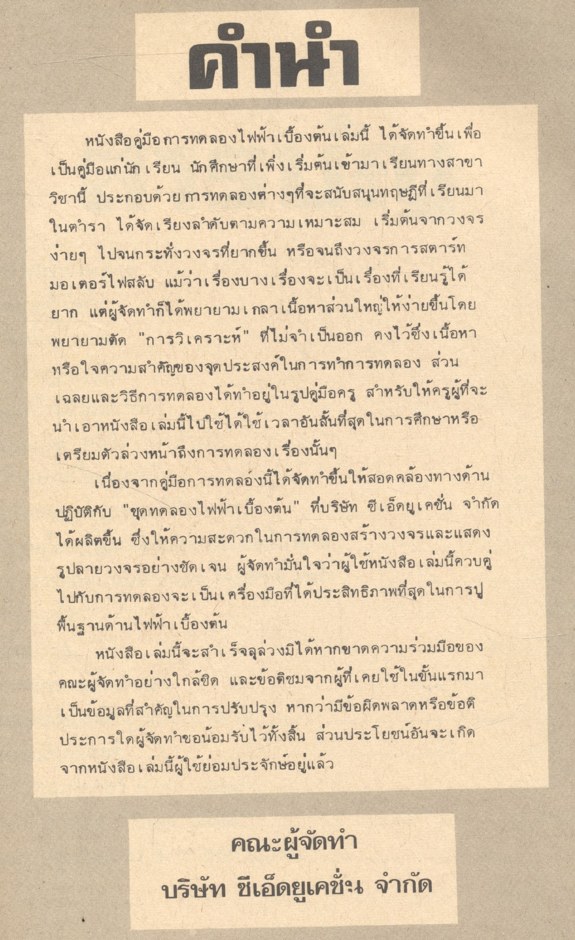 คำนำ
หนังสือคู่มือการทดลองไฟฟ้าเบื้องต้นเล่มนี้ ได้จัดทำขึ้นเพื่อ
เป็นคู่มือแก่นักเรียน นักศึกษาที่เพิ่งเริ่มต้นเข้ามาเรียนทางสาขา
วิชานี้ ประกอบด้วยการทดลองต่างๆที่จะสนับสนุนทฤษฎีที่เรียนมา
ในตำรา ได้จัดเรียงลำดับตามความเหมาะสม เริ่มต้นจากวงจร
ง่ายๆ ไปจนกระทั่งวงจรที่ยากขึ้น หรือจนถึงวงจรการสตาร์ท
มอเตอร์ไฟสลับ แม้ว่าเรื่องบางเรื่องจะเป็นเรื่องที่เรียนรู้ได้
ยาก แต่ผู้จัดทำก็ได้พยายามเกลาเนื้อหาส่วนใหญ่ให้ง่ายขึ้นโดย
พยายามตัด "การวิเคราะห์" ที่ไม่จำเป็นออก คงไว้ซึ่งเนื้อหา
หรือใจความสำคัญของจุดประสงค์ในการทำการทดลอง ส่วน
เฉลยและวิธีการทดลองได้ทำอยู่ในรูปคู่มือครู สำหรับให้ครูผู้ที่จะ
นำเอาหนังสือเล่มนี้ไปใช้ได้ใช้เวลาอันสั้นที่สุดในการศึกษาหรือ
เตรียมตัวล่วงหน้าถึงการทดลองเรื่องนั้นๆ
เนื่องจากคู่มือการทดลองนี้ได้จัดทำขึ้นให้สอดคล้องทางด้าน
ปฏิบัติกับ "ชุดทดลองไฟฟ้าเบื้องต้น" ที่บริษัท ซีเอ็ดยูเคชั่น จำกัด
ได้ผลิตขึ้น ซึ่งให้ความสะดวกในการทดลองสร้างวงจรและแสดง
รูปลายวงจรอย่างชัดเจน ผู้จัดทำมั่นใจว่าผู้ใช้หนังสือเล่มนี้ควบคู่
ไปกับการทดลองจะเป็นเครื่องมือที่ได้ประสิทธิภาพที่สุดในการปู
พื้นฐานด้านไฟฟ้าเบื้องต้น
หนังสือเล่มนี้จะสำเร็จลุล่วงมิได้หากขาดความร่วมมือของ
คณะผู้จัดทำอย่างใกล้ชิด และข้อติชมจากผู้ที่เคยใช้ในขั้นแรกมา
เป็นข้อมูลที่สำคัญในการปรับปรุง หากว่ามีข้อผิดพลาดหรือข้อติ
ประการใดผู้จัดทำขอน้อมรับไว้ทั้งสิ้น ส่วนประโยชน์อันจะเกิด
จากหนังสือเล่มนี้ผู้ใช้ย่อมประจักษ์อยู่แล้ว
คณะผู้จัดทำ
บริษัท ซีเอ็ดยูเคชั่น จำกัด